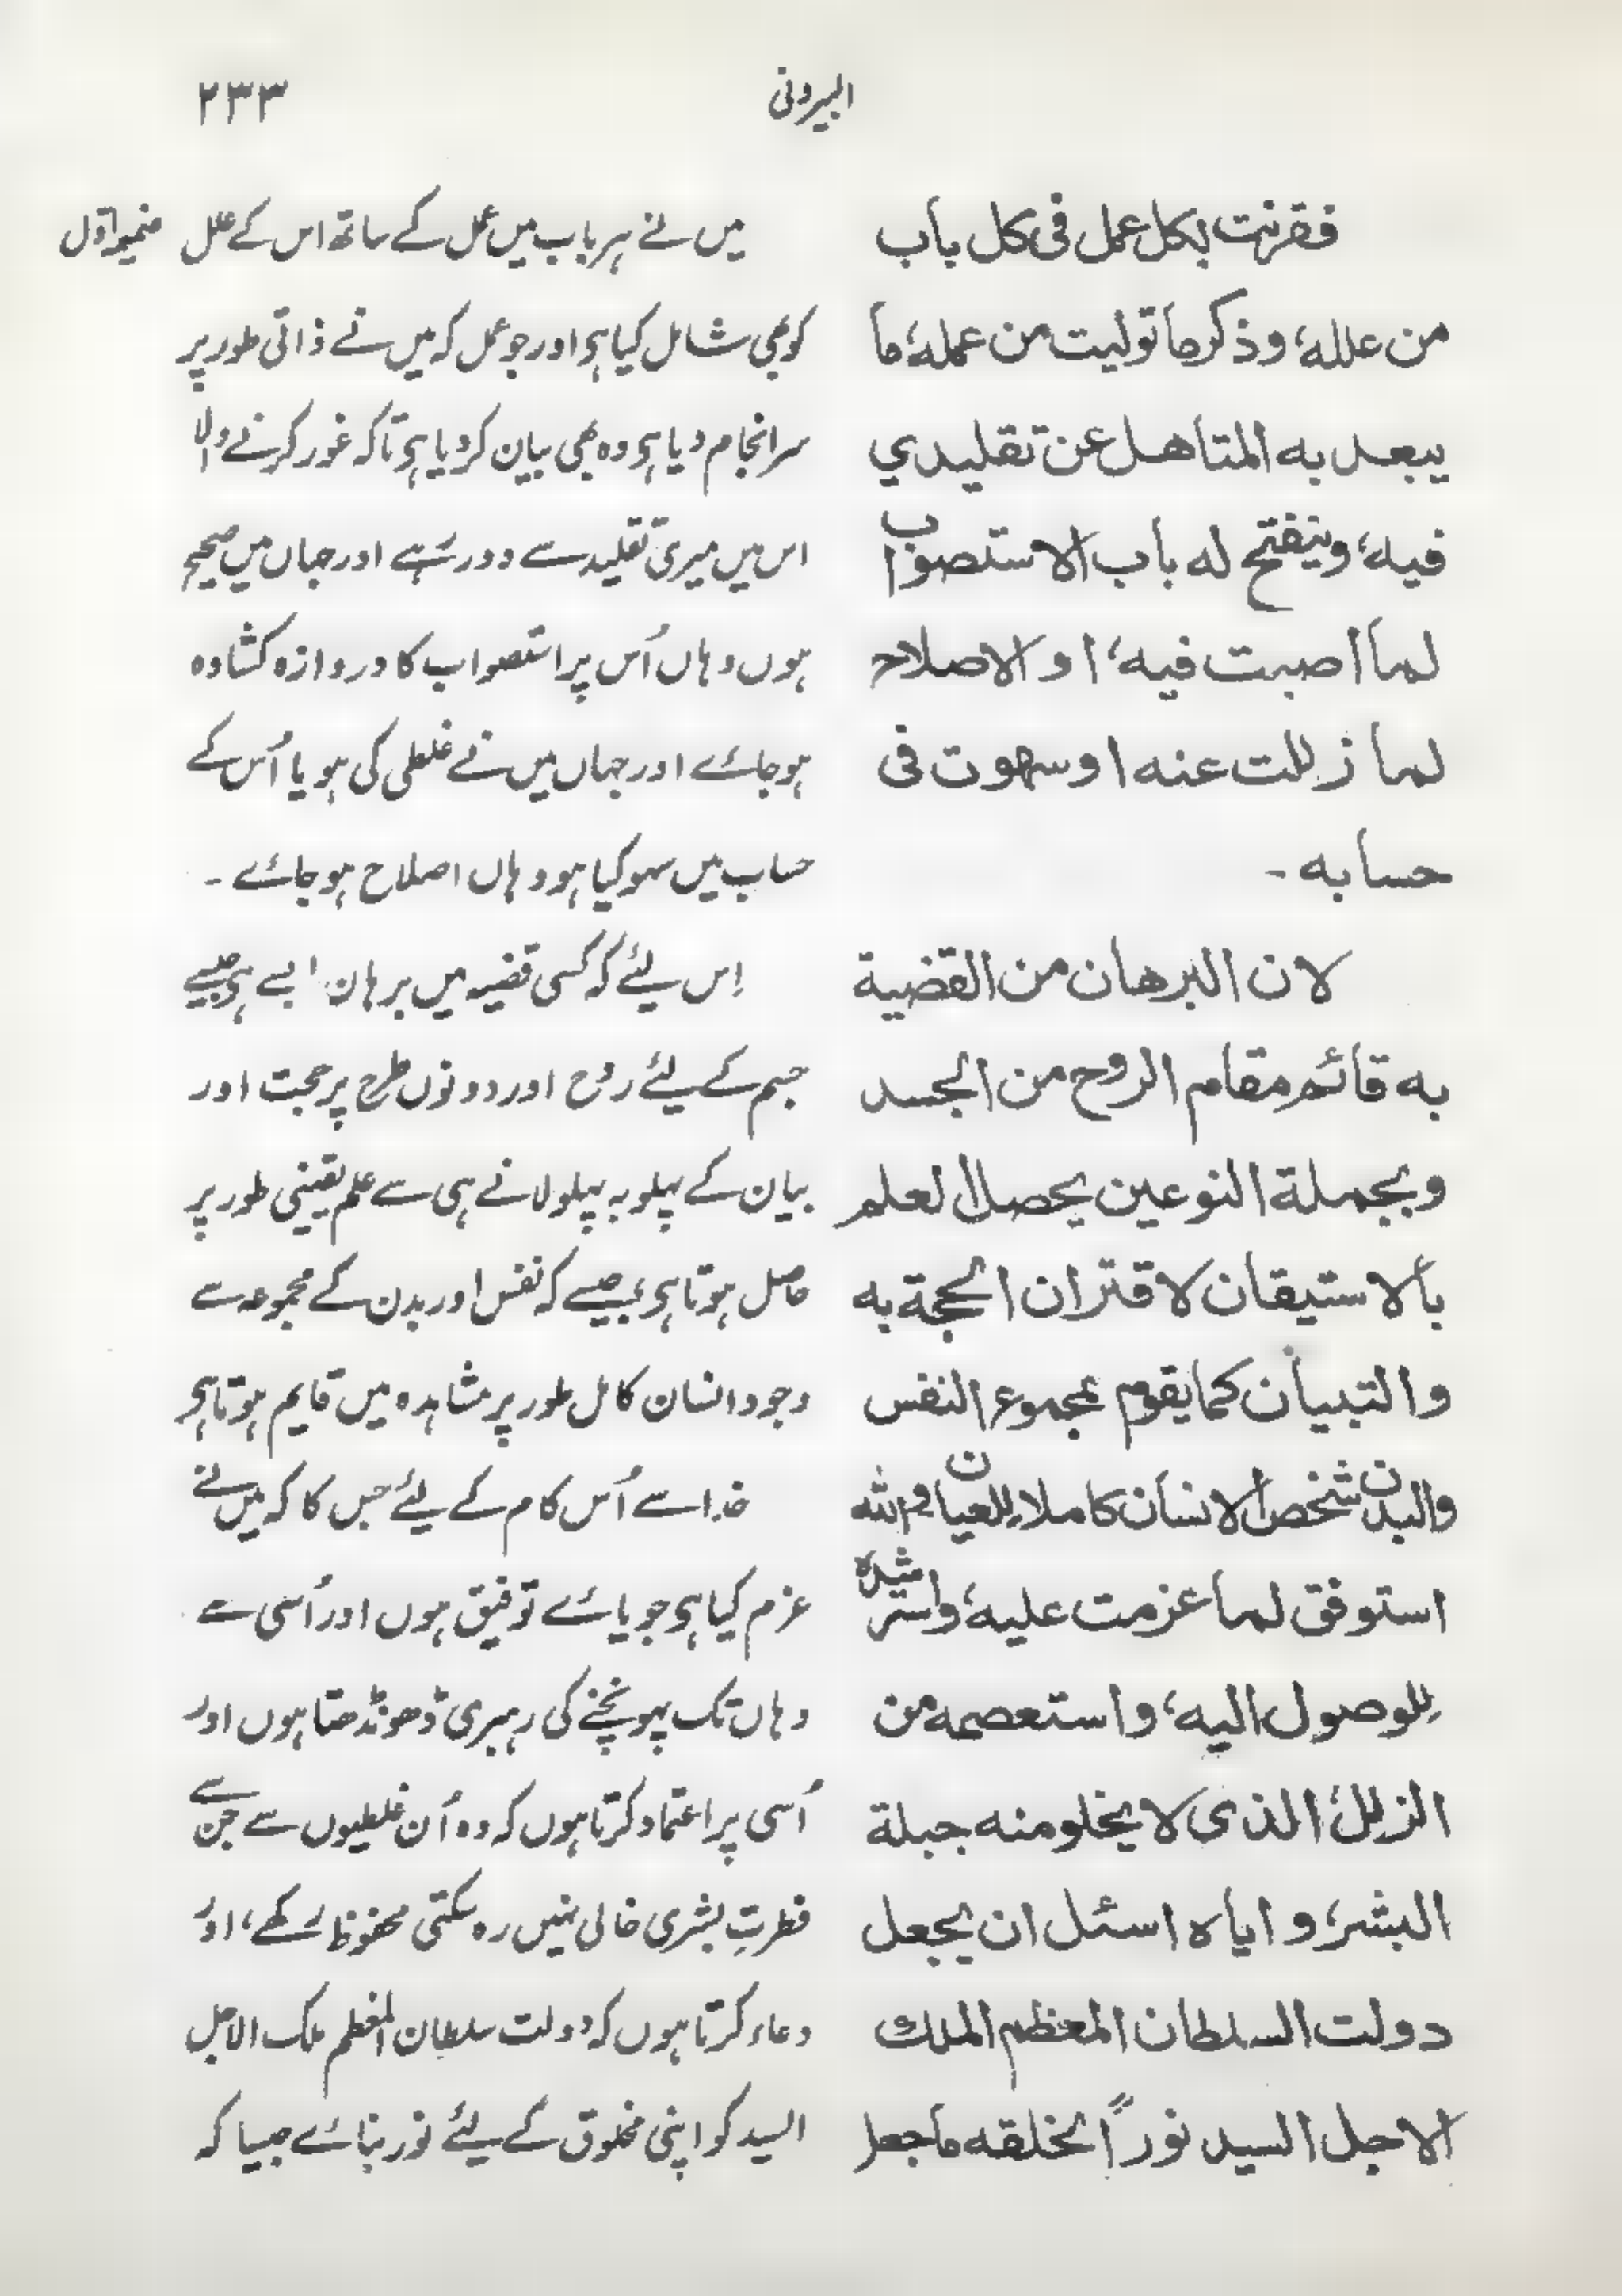 البیرونی
۲۳۳
فقرنت بکل عمل فی کل باب
من علله، وذکر ما تولیت من عمله، ما
یبعد به المتاهل عن تقلیدي
فیه، وینفتح له باب الاستصواب
لما أصبت فیه، او الاصلاح
لما زللت عنه او سهوت فی
حسابه ۔
لان البرهان من القضیة
به قائم مقام الروح من الجسد
وبجملة النوعین یحصل العلم
بالاستیقان لاقتران الحجة به
والتبیان کما یقوم بمجموع النفس
والبدن شخص الانسان کاملا للعیان والله
استوفق لما عزمت علیه، واسترشده
للوصول الیه، واستعصمه من
الزلل الذی لا یخلو منه جبلة
البشر، وایاه اسئل ان یجعل
دولت السلطان المعظم الملک
الاجل السید نوراً لخلقه ما جعل
ضمیمہ اوّل
میں نے ہر باب میں عمل کے ساتھ اس کے علل
کو بھی شامل کیا ہی اور جو عمل کہ میں نے ذاتی طور پر
سرانجام دیا ہی وہ بھی بیان کر دیا ہی تاکہ غور کرنے والا
اس میں میری تقلید سے دور رہے اور جہاں میں صحیح
ہوں وہاں اُس پر استصواب کا دروازہ کشادہ
ہو جائے اور جہاں میں نے غلطی کی ہو یا اُس کے
حساب میں سہو کیا ہو وہاں اصلاح ہو جائے ۔
اِس لیٔے کہ کسی قضیہ میں برہان ایسے ہی جیسے
جسم کے لیٔے روح اور دونوں طرح پر حجت اور
بیان کے پہلو بہ پہلو لانے ہی سے علم یقینی طور پر
حاصل ہوتا ہی، جیسے کہ نفس اور بدن کے مجموعہ سے
وجود انسان کامل طور پر مشاہدہ میں قایم ہوتا ہی
خدا سے اُس کام کے لیٔے جس کا کہ میں نے
عزم کیا ہی جویائے توفیق ہوں اور اُسی سے
وہاں تک پہونچنے کی رہبری ڈھونڈھتا ہوں اور
اُسی پر اعتماد کرتا ہوں کہ وہ اُن غلطیوں سے جن سے
فطرتِ بشری خالی نہیں رہ سکتی محفوظ رکھے، اور
دعاء کرتا ہوں کہ دولت سلطان المعظم ملک الاجل
السید کو اپنی مخلوق کے لیٔے نور بنائے جیسا کہ